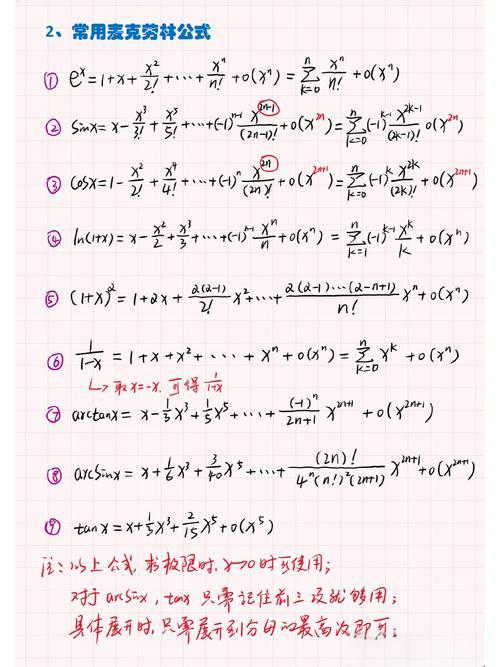 2、常用麦克劳林公式
① eˣ=1+x+x²/2!+···+xⁿ/n!+o(xⁿ)=∑_{k=0}^{n} xⁿ/n!+o(xⁿ)
② sinx=x-x³/3!+x⁵/5!+···+(-1)ⁿ⁻¹x²ⁿ⁻¹/(2n-1)!+o(x²ⁿ)=∑_{k=0}^{n}(-1)ᵏ⁻¹x²ᵏ⁻¹/(2k-1)!o(x²ⁿ)
③ cosx=1-x²/2!+x⁴/4!+···+(-1)ⁿx²ⁿ/(2n)!+o(x²ⁿ⁺¹)=∑_{k=0}^{n}(-1)ᵏx²ᵏ/(2k)!+o(x²ⁿ⁺¹)
④ ln(1+x)=x-x²/2+x³/3+···+(-1)ⁿ⁻¹xⁿ/n+o(xⁿ)=∑_{k=1}^{n}(-1)ᵏ⁻¹xᵏ/k+o(xⁿ)
⑤ (1+x)²=1+2x+2(2-1)/2!x²+···+2(2-1)···(2-n+1)/n!xⁿ+o(xⁿ)
⑥ 1/(1-x)=1+x+x²+····+xⁿ+o(xⁿ)=∑_{k=0}^{n}xᵏ+o(xⁿ)
↳取x=-x,可得1/(1+x)
⑦ arctanx=x-1/3x³+1/5x⁵+···+(-1)ⁿ/(2n+1)x²ⁿ⁺¹+o(x²ⁿ⁺¹)
⑧ arcsinx=x+1/6x³+3/40x⁵+···+(2n)!/(4ⁿ(n!)²(2n+1))x²ⁿ⁺¹+o(x²ⁿ⁺¹)
⑨ tanx=x+1/3x³+2/15x⁵+o(x⁵)
注:以上公式,求极限时,x→0时可使用;
对于arcsinx,tanx只需记住前三项就够用;
具体展开时,只需展开到分母的最高次即可.